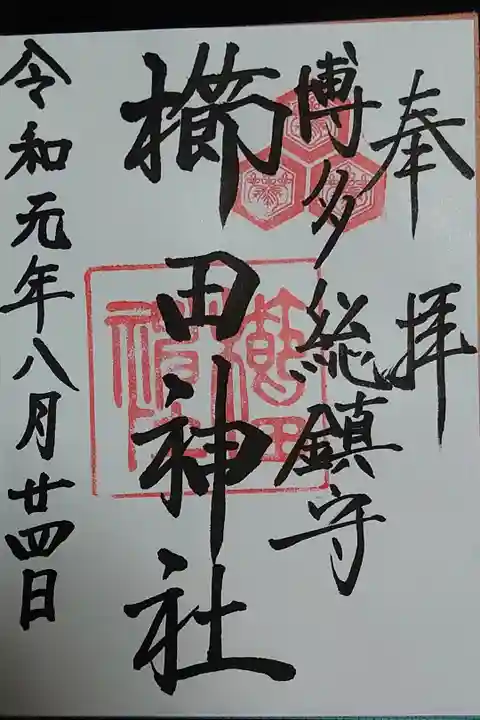 奉拝
博多総鎮守
櫛田神社
令和元年八月廿四日